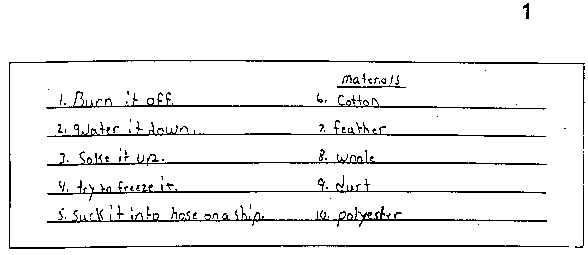 1
materials
1. Burn it off. 6. Cotton
2. Water it down. 7. feather
3. Soke it up. 8. woole
4. try to freeze it. 9. durt
5. Suck it into hose on a ship. 10. polyester